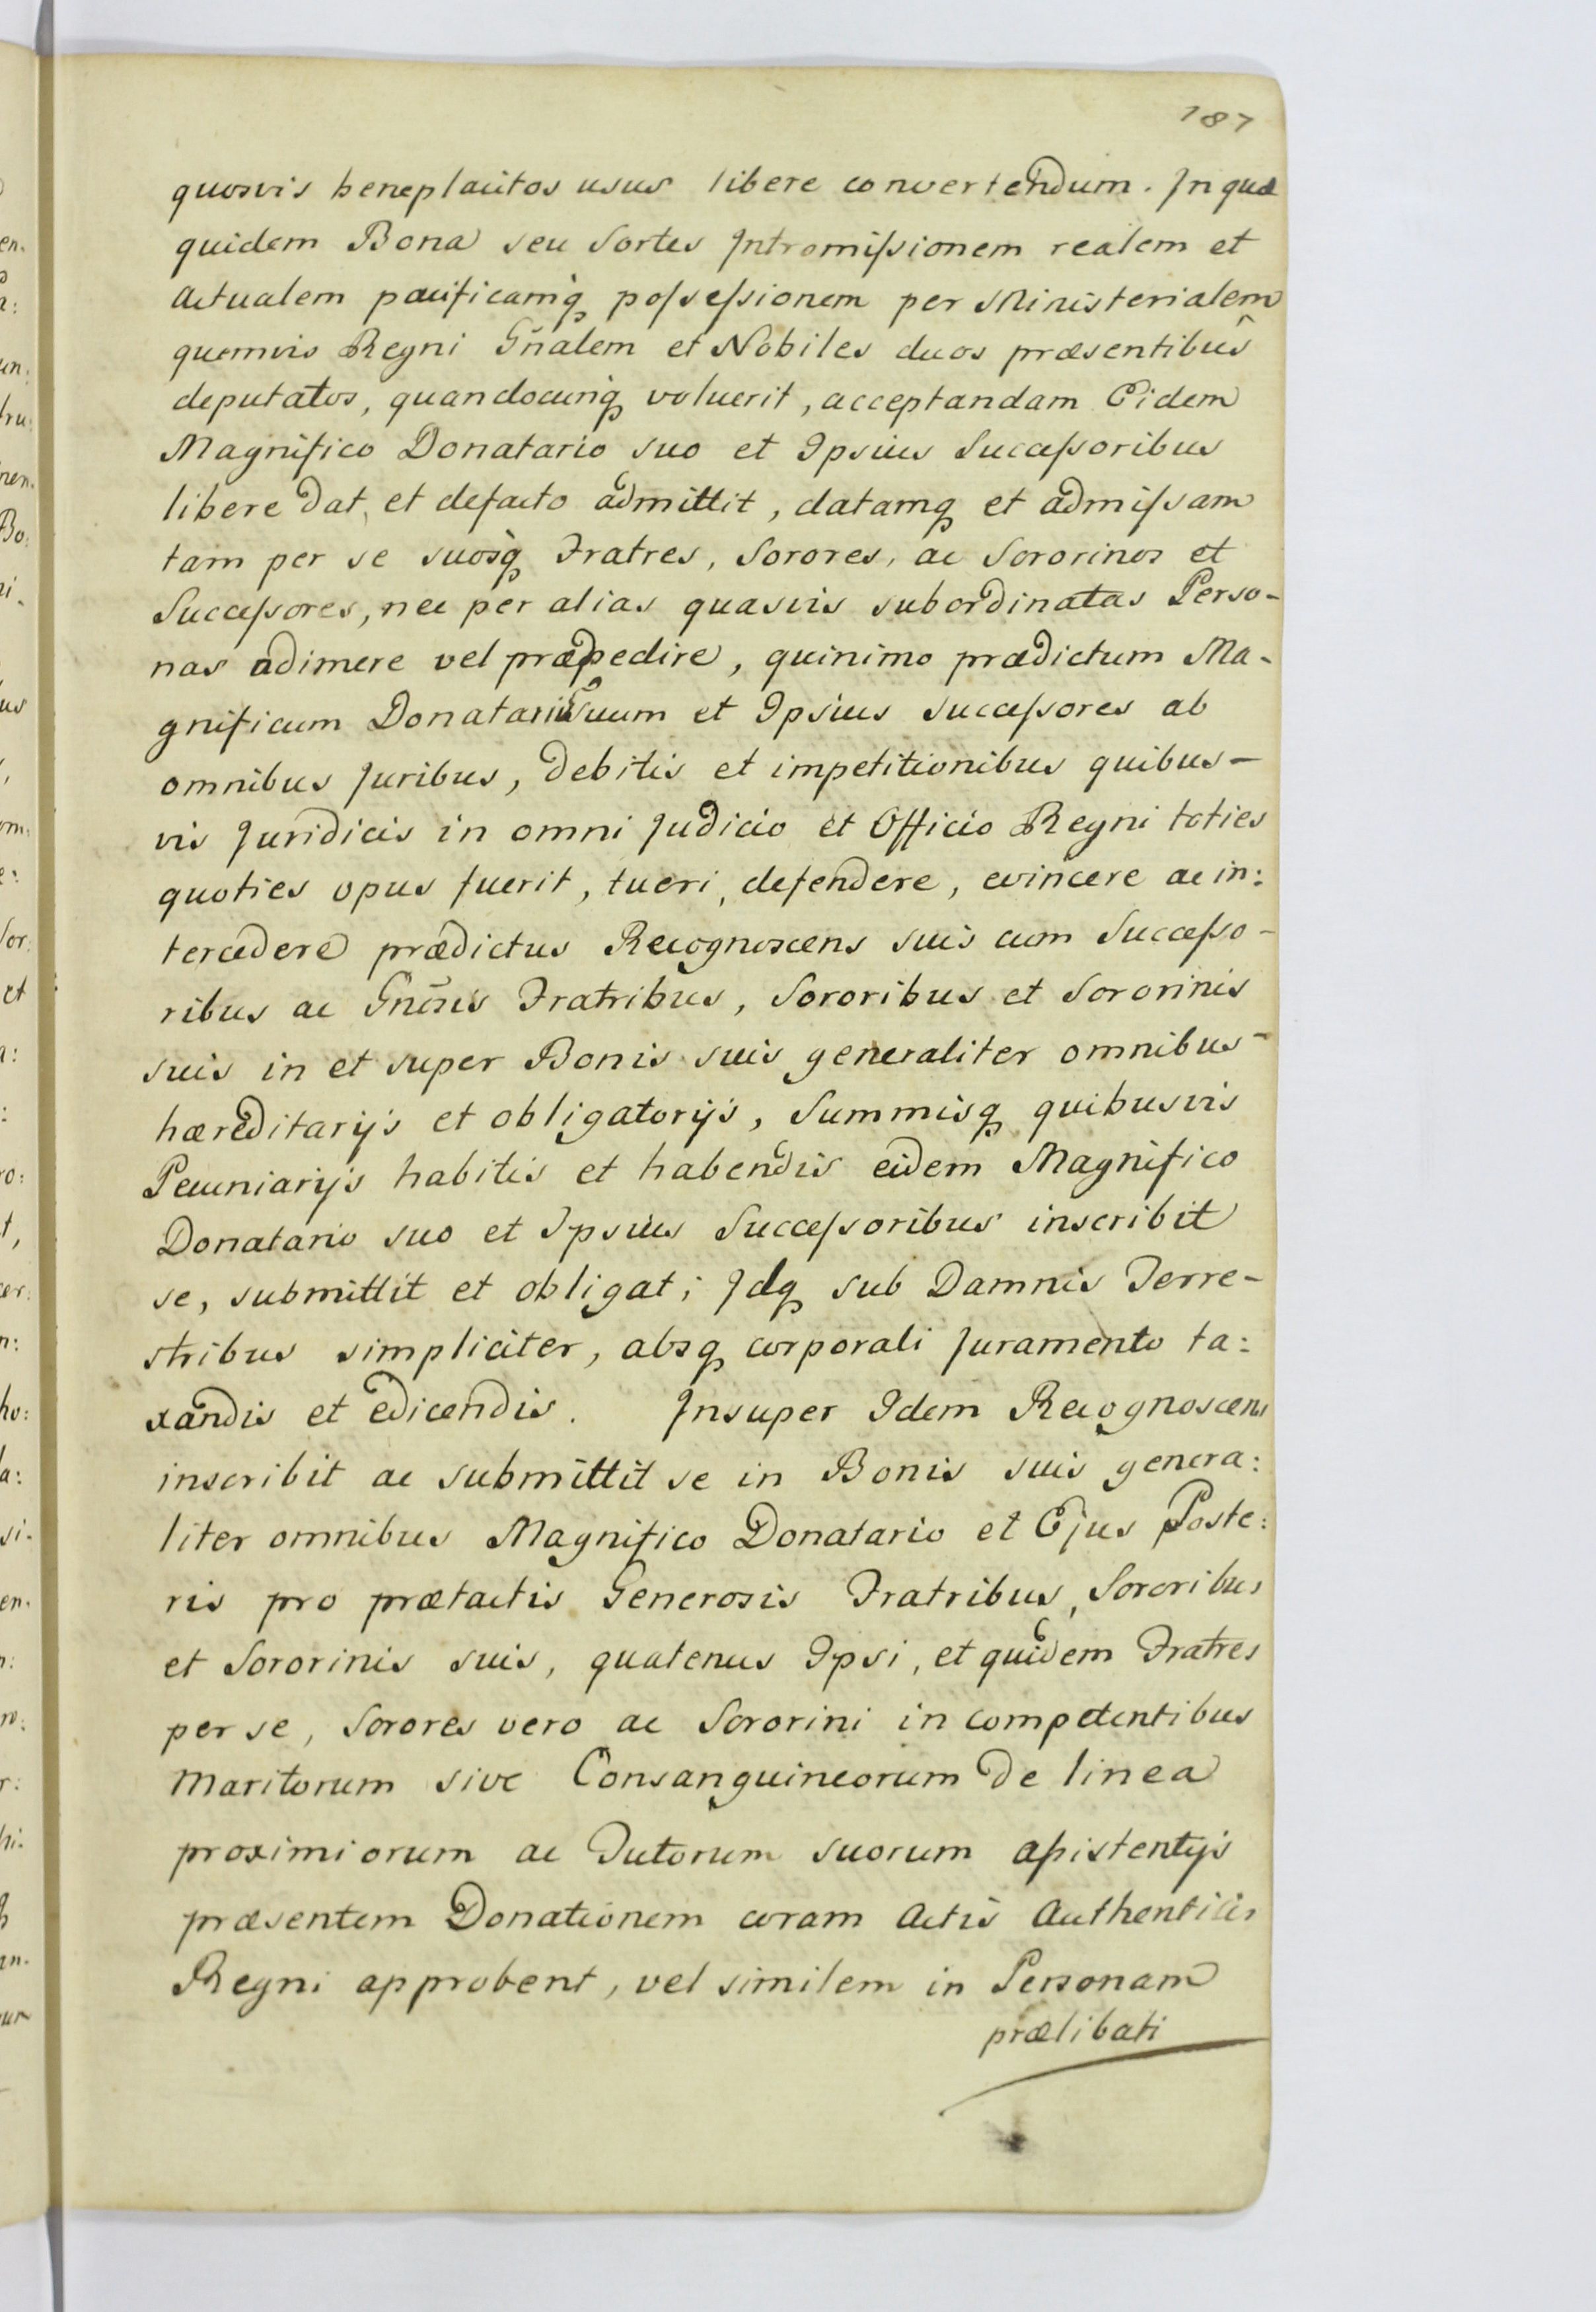 187
quosvis beneplacitos usus libere convertendum. In quæ
quidem Bona seu Sortes Intromiſsionem realem et
Actualem pacificamq́ꝫ poſseſsionem per Ministerialem
quemvis Regni Gn̄alem et Nobiles duos præsentibus
deputatos, quandocunq́ꝫ voluerit, acceptandam Eidem
Magnifico Donatario suo et Ipsius Succeſsoribus
libere dat, et defacto admittit, datamqꝫ et admiſsam
tam per se suosq́ꝫ Fratres, Sorores, ac Sororinos et
Succeſsores, nec per alias quasvis subordinatas Perso-
nas adimere vel præpedire, quinimo prædictum Ma-
gnificum Donatariū Suum et Ipsius succeſsores ab
omnibus Juribus, debitis et impetitionibus quibus-
vis Juridicis in omni Judicio et Officio Regni toties
quoties opus fuerit, tueri, defendere, evincere ac in:
tercedere prædictus Recognoscens suis cum Succeſso-
ribus ac Gn̄sis Fratribus, Sororibus et Sororinis
suis in et super Bonis suis generaliter omnibus
hæreditarijs et obligatorijs, Summisqꝫ quibusvis
Pecuniarijs habitis et habendis eidem Magnifico
Donatario suo et Ipsius Succeſsoribus inscribit
se, submittit et obligat; Idqꝫ sub Damnis Terre-
stribus simpliciter, absqꝫ corporali Juramento ta:
xandis et edicendis. Insuper Idem Recognoscens
inscribit ac submittit se in Bonis suis genera:
liter omnibus Magnifico Donatario et Ejus Poste:
ris pro prætactis Generosis Fratribus, Sororibus
et Sororinis suis, quatenus Ipsi, et quidem Fratres
per se, Sorores vero ac Sororini in competentibus
Maritorum sive Consanguineorum de linea
proximiorum ac Tutorum suorum aſsistentijs
præsentem Donationem coram Actis Authenticis
Regni approbent, vel similem in Personam
prælibati